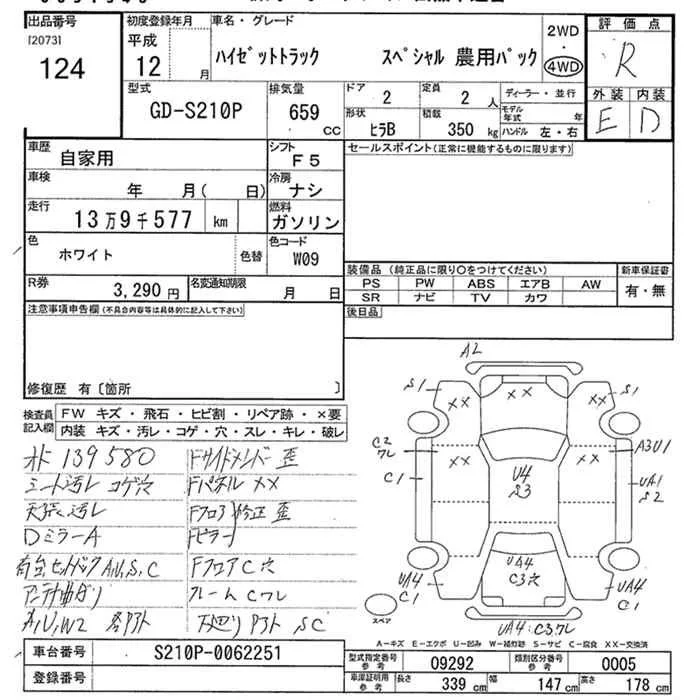 出品番号
[2073]
124
初度登録年月
平成
12 月
車名・グレード
ハイゼットトラック スペシャル 農用パック
2WD
4WD
評価点
R
外装 内装
E D
型式
GD-S210P
排気量
659
CC
ドア
2
定員
2 人
形状
ヒラB
積載
350 kg
ディーラー・並行
モデル年式 年
ハンドル 左・右
車歴
自家用
シフト
F5
車検
年 月( 日)
冷房
ナシ
走行
13万9千577 km
燃料
ガソリン
色
ホワイト
色替
色コード
W09
R券
3,290 円
名変通知期限
月 日
セールスポイント(正常に機能するものに限ります)
装備品 (純正品に限り○をつけてください)
PS PW ABS エアB AW
SR ナビ TV カワ
新車保証書
有・無
後日品
注意事項申告欄(不具合内容等は具体的に記入して下さい)
修復歴 有〔箇所 〕
検査員記入欄
FW キズ・飛石・ヒビ割・リペア跡・×要
内装 キズ・汚レ・コゲ・穴・スレ・キレ・破レ
139580
Fサイドメンバー歪
シート汚レ コゲ穴
Fパネル XX
天張汚レ
Fフロア 修正 歪
DミラーA
Fピラー
A,U,S,C
FフロアC穴
アンテナ曲がり
フレームCワレ
A,U,W2
下廻り SC
A2
S1
XX
XX
S1
C2
ワレ
C1
XX
XX
A3U1
UA1
S2
U4
S3
UA4
C3穴
UA4
C1
UA4
C1
UA4:C3ワレ
スペア
A-キズ E-エクボ U-凹み W-補修跡 S-サビ C-腐食 XX-交換済
車台番号
S210P-0062251
登録番号
型式指定番号
参考
09292
類別区分番号
参考
0005
車庫証明用
参考
長さ
339 cm
幅
147 cm
高さ
178 cm